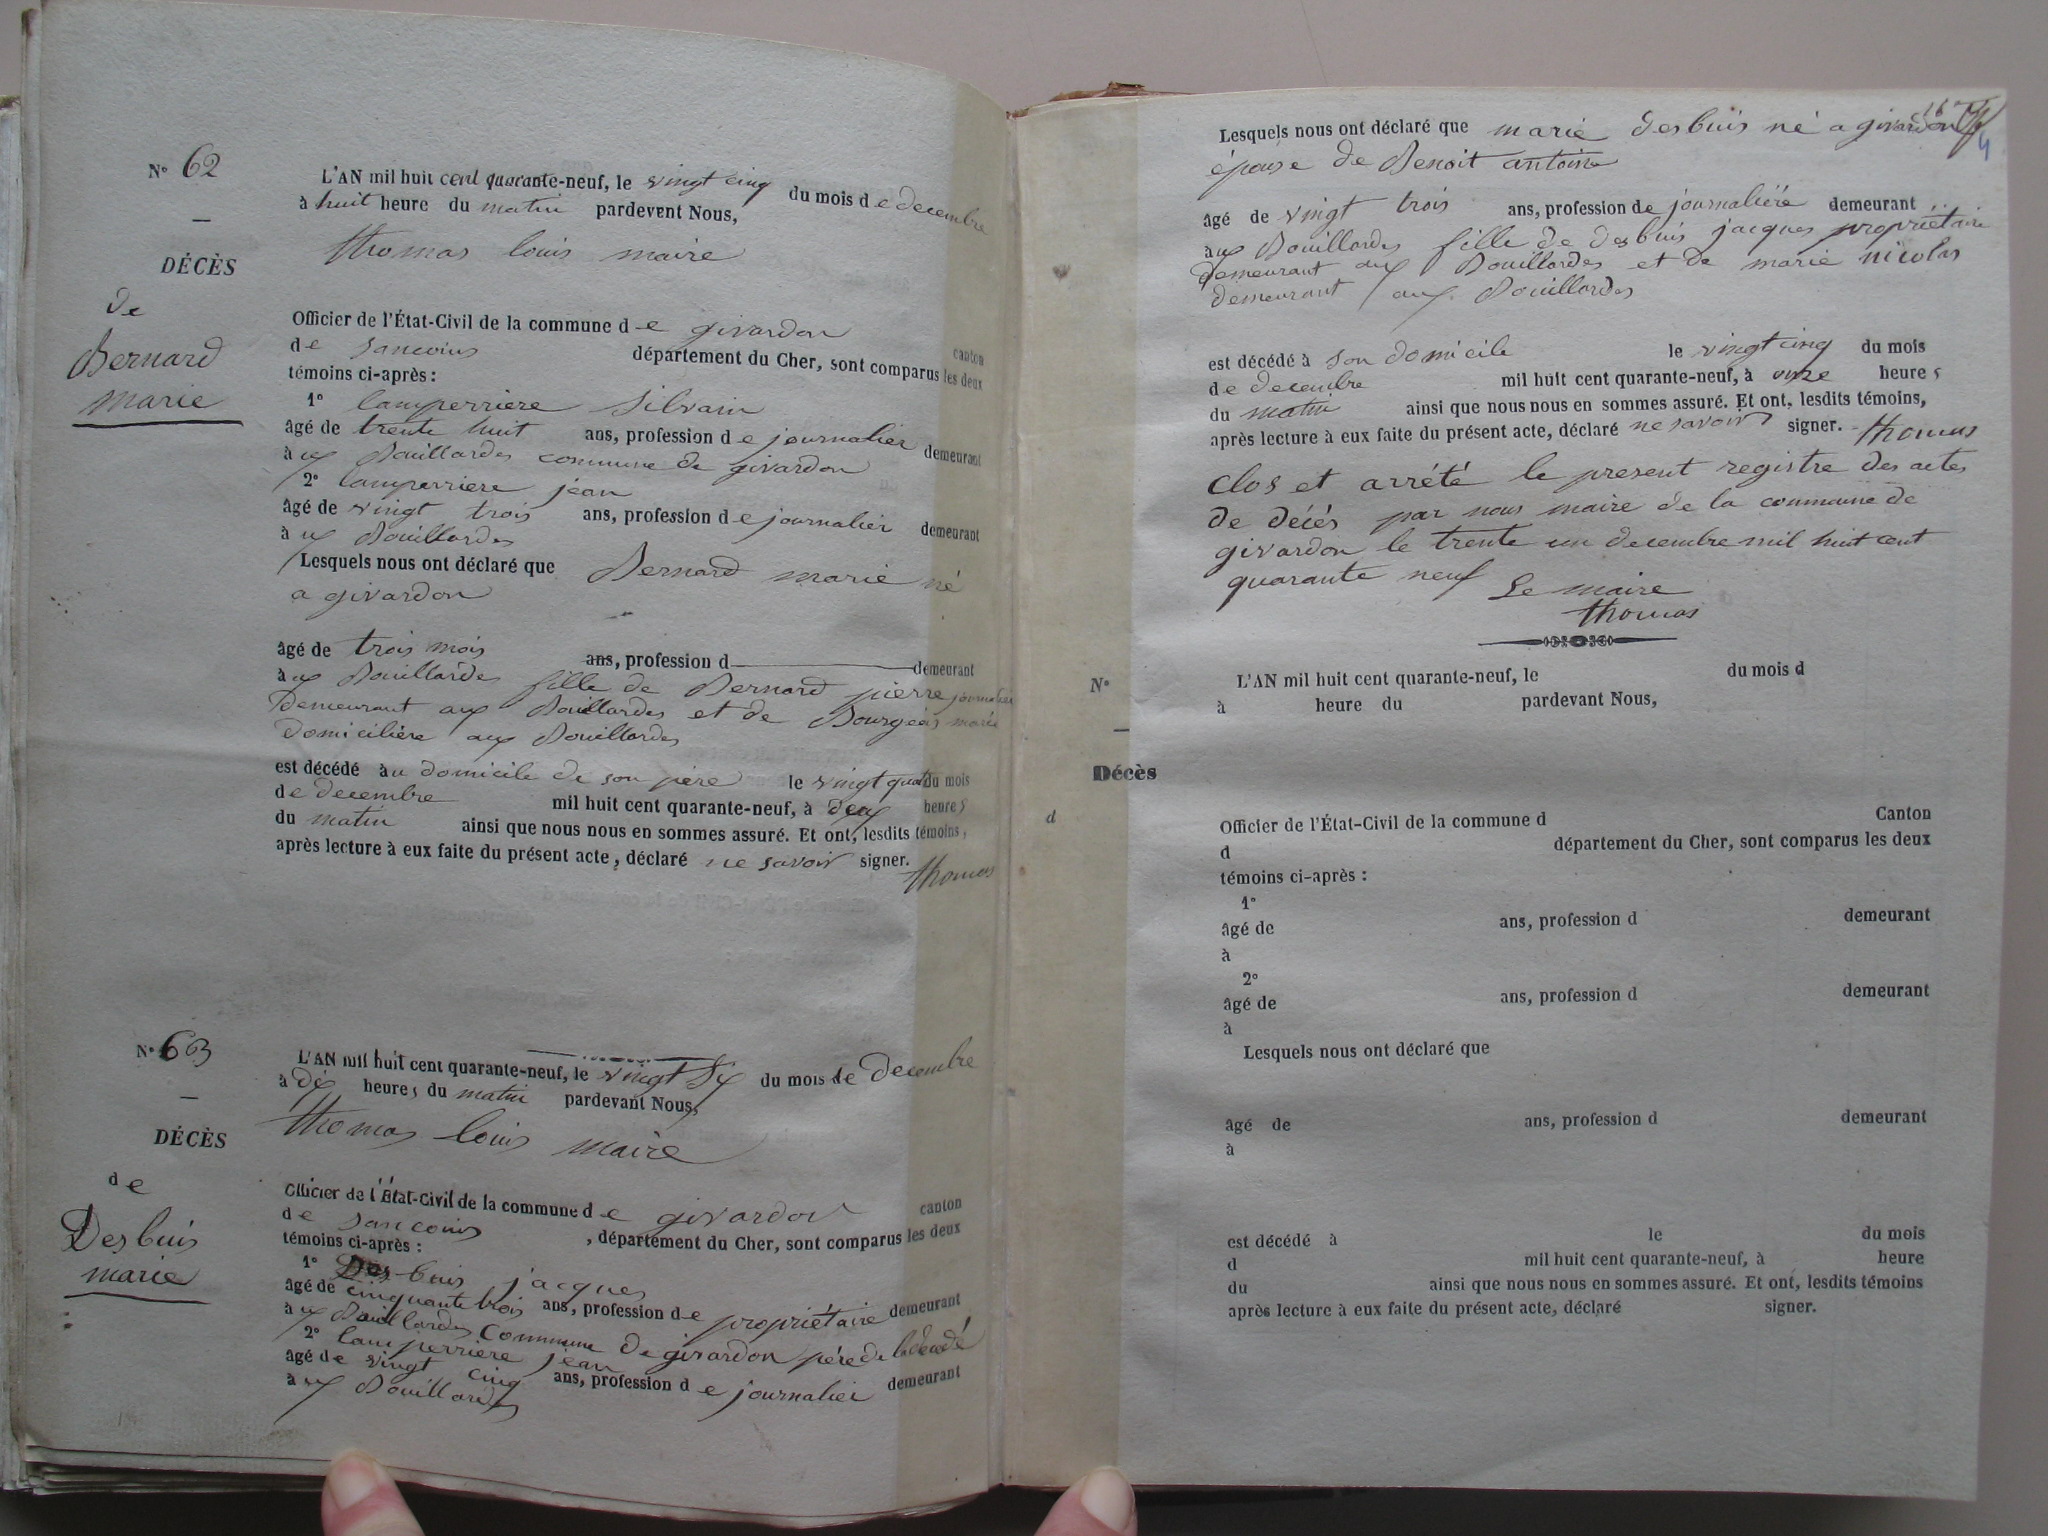 N° 62
DÉCÈS
de
Bernard
marie
L'AN mil huit cent quarante-neuf, le vingt cinq du mois de decembre
à huit heure du matin pardevent Nous,
thomas louis maire
Officier de l'État-Civil de la commune de givardon canton
de sancoins département du Cher, sont comparus les deux
témoins ci-après :
1° lamperriere silvain
âgé de trente huit ans, profession de journalier demeurant
àux Douillardes commune de givardon
2° lamperriere jean
âgé de vingt trois ans, profession de journalier demeurant
àux Douillardes
Lesquels nous ont déclaré que Bernard marie né
a givardon
âgé de trois mois ans, profession d demeurant
àux Douillardes fille de Bernard pierre journalier
Demeurant aux Douillardes et de Bourgeois marie
domiciliére aux Douillardes
est décédé àu domicile de son pére le vingt quat du mois
de decembre mil huit cent quarante-neuf, à deux heures
du matin ainsi que nous nous en sommes assuré. Et ont, lesdits témoins,
après lecture à eux faite du présent acte, déclaré ne savoir signer. thomas
N° 63
DÉCÈS
de
Desbuis
marie
L'AN mil huit cent quarante-neuf, le vingt six du mois de decembre
à dix heures du matin pardevant Nous,
thomas louis maire
Officier de l'État-Civil de la commune de givardon canton
de sancoins , département du Cher, sont comparus les deux
témoins ci-après :
1° Desbuis jacques
âgé de cinquante trois ans, profession de propriétaire demeurant
àux Douillardes commune de givardon pére de la décédé
2° lamperriere jean
âgé de vingt cinq ans, profession de journalier demeurant
àux Douillardes
Lesquels nous ont déclaré que marie desbuis né a givardon
épouse de Benoit antoine
âgé de vingt trois ans, profession de journaliére demeurant
aux Douillardes fille de desbuis jacques propriétaire
demeurant aux Douillardes et de marie nicolas
demeurant aux Douillardes
est décédé à son domicile le vingt cinq du mois
de decembre mil huit cent quarante-neuf, à onze heures
du matin ainsi que nous nous en sommes assuré. Et ont, lesdits témoins,
après lecture à eux faite du présent acte, déclaré ne savoir signer. thomas
Clos et arrété le present registre des actes
de décés par nous maire de la commune de
givardon le trente un decembre mil huit cent
quarante neuf Le maire
thomas
N°
Décès
d
L'AN mil huit cent quarante-neuf, le du mois d
à heure du pardevant Nous,
Officier de l'État-Civil de la commune d Canton
d département du Cher, sont comparus les deux
témoins ci-après :
1°
âgé de ans, profession d demeurant
à
2°
âgé de ans, profession d demeurant
à
Lesquels nous ont déclaré que
âgé de ans, profession d demeurant
à
est décédé à le du mois
d mil huit cent quarante-neuf, à heure
du ainsi que nous nous en sommes assuré. Et ont, lesdits témoins
après lecture à eux faite du présent acte, déclaré signer.